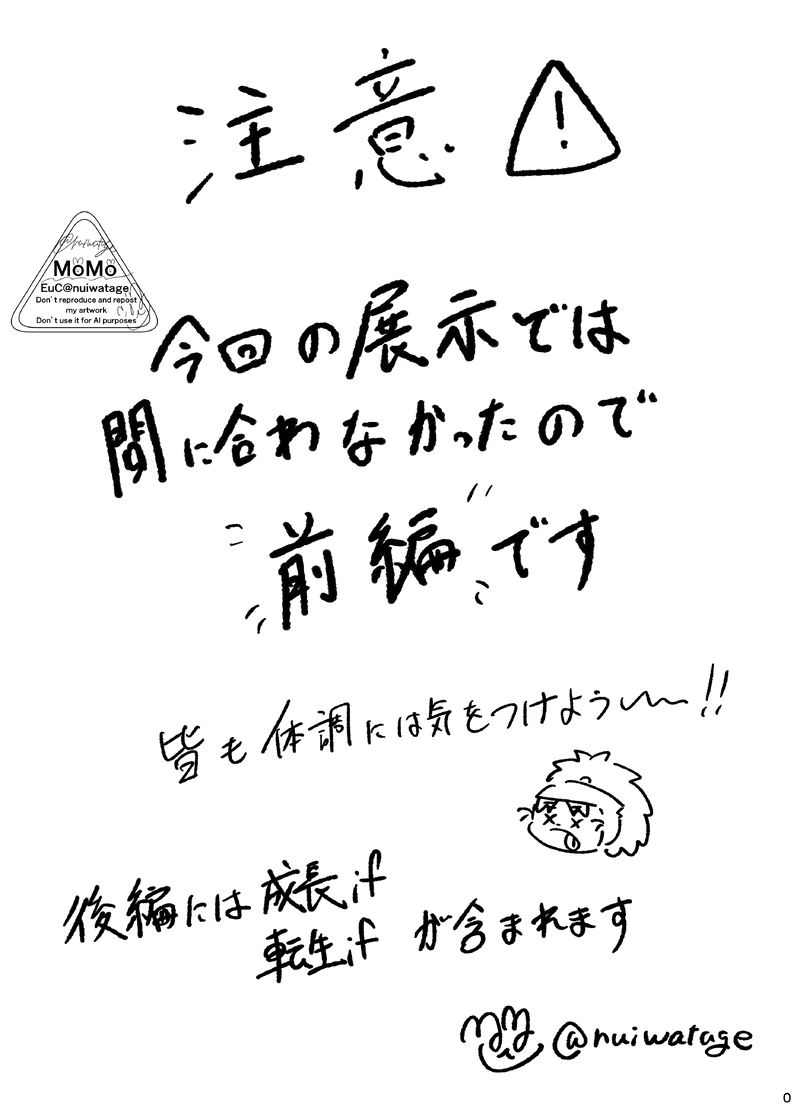 注意
!
@nuiwatage
MoMo
EuC@nuiwatage
Don't reproduce and repost
my artwork
Don't use it for AI purposes
今回の展示では
間に合わなかったので
前編です
皆も体調には気をつけよう〜〜!!
後編には成長if
転生if が含まれます
@nuiwatage
0